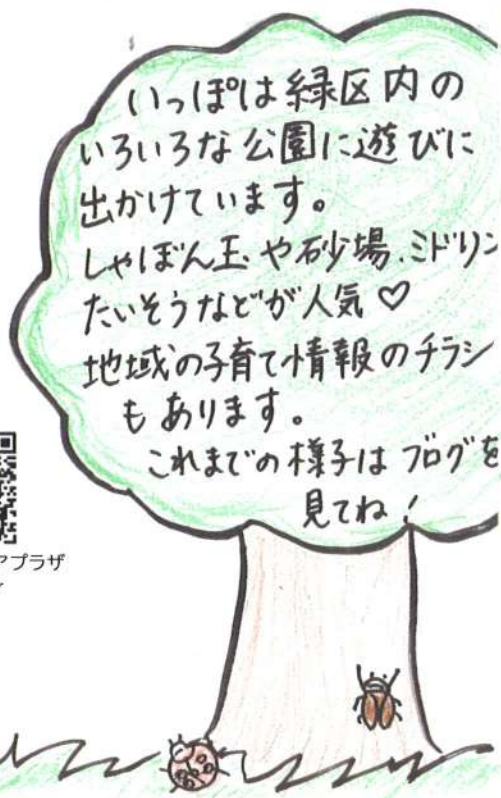 いっぽは緑区内の
いろいろな公園に遊びに
出かけています。
しゃぼん玉や砂場、ミドリン
たいそうなどが人気♡
地域の子育て情報のチラシ
もあります。
これまでの様子はブログを
見てね!
アプラザ